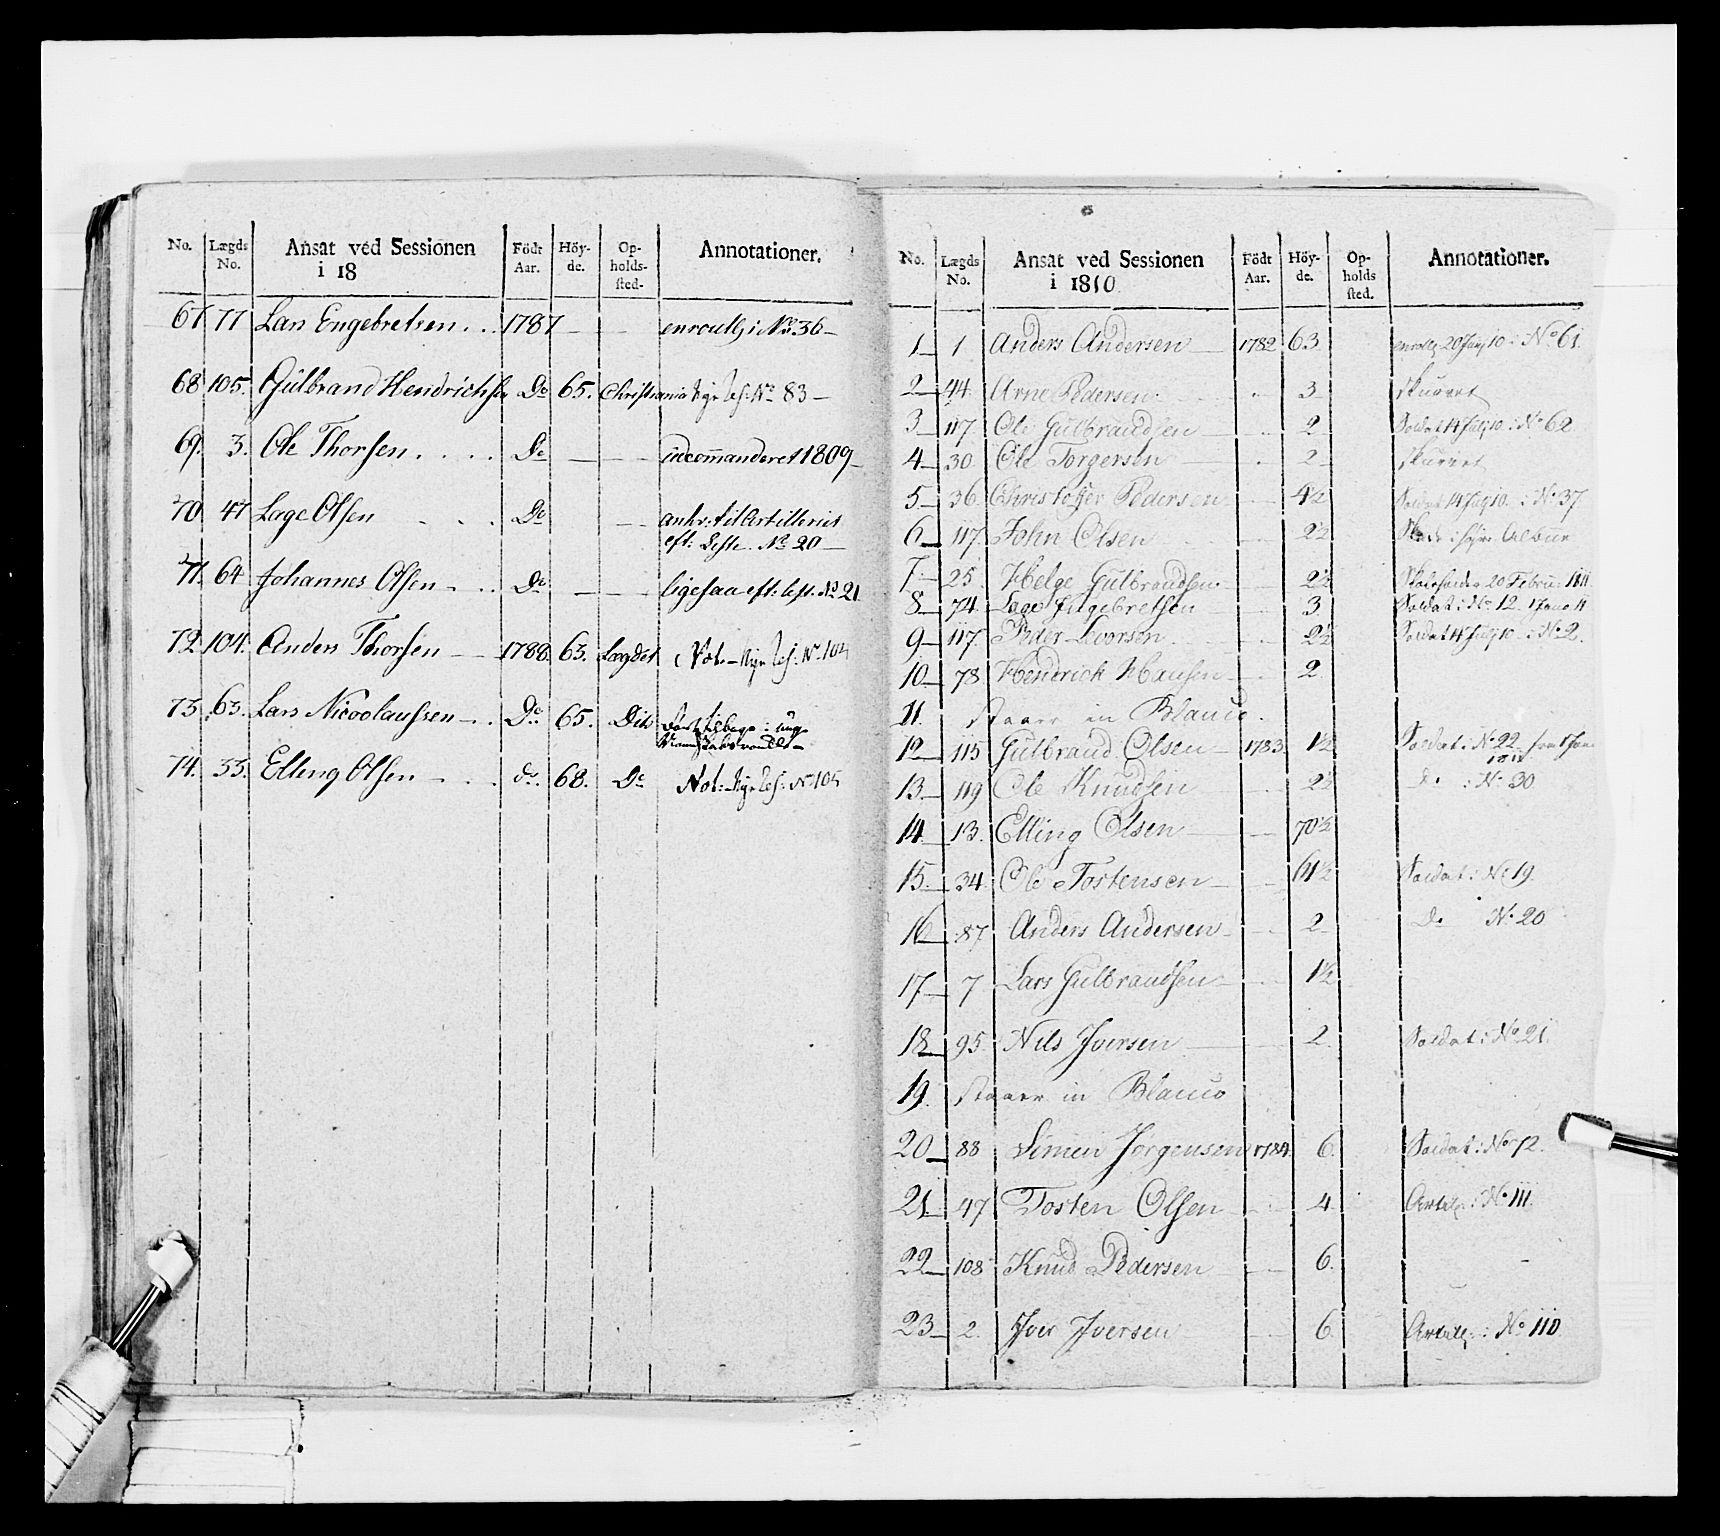 No. Lægds No. Ansat ved Sessionen i 18 Födt Aar. Höy-de. Op-holds-sted- Annotationer.
67 77 Lars Engebretsen . . 1787 — — enroull: i No. 36 —
68 105. Gulbrand Hendrichsen Do 65. Christiania Nye Les: No 83 —
69. 3. Ole Thorsen . . . . Do — — incommanderet 1809 —
70 47 Lage Olsen . . . Do — — anhv: til Artilleriet
eft: Liste No 20 —
71. 64 Johannes Olsen — . . Do — — ligesaa eft: List. No 21
72 104. Anders Thorsen — 1788. 63. Lægdet Not: — Nye Les: No 104
73 63. Lars Nicoolaussen — . Do 65. Dito
74. 33. Elleng Olsen — . . do. 68. Do Not: — Nye Les: No 105
No. Lægds No. Ansat ved Sessionen i 1810. Födt Aar. Höy-de. Op-holds sted. Annotationer.
1 — 1 Anders Andersen — 1782 63 enroll. 20 Juny 10 : No 61
2 — 44. Arne Pedersen . . . 3 skurvet
3 — 117 Ole Gulbrandsen — . . 2 Soldat 14 July 10. : No 62
4 — 30. Ole Torgersen — . 2 — skurvet
5 — 36 Christoffer Pedersen — 4½ Soldat 14 July 10. : No 37
6 — 117 John Olsen — 2½
7 — 25. Helge Gulbrandsen 2½ 20 Febru: 1811
8 — 74. Lage Ingebretsen 3 Soldat: No 12 17
9 — 117. Peder Iversen 2½ Soldat 14 July 10. : No 2.
10. — 78 Hendrick Hansen — 2
11. staaer in Blanco.
12 — 115 Gulbrand Olsen — 1783 1½ Soldat: No 22
1811
13. — 119 Ole Knudsen — 2½ Do : No 30
14 — 13. Elling Olsen — 70½
15. — 34. Ole Tostensen — 61½ Soldat: No 19.
16 — 87 Anders Andersen — 2 — Do No 20
17. — 7 Lars Gulbrandsen — 1½
18 — 95. Nils Iversen — 2 Soldat: No 21.
19. staaer in Blanco
20 — 88 Simen Jörgensen 1784. 6. Soldat: No 72.
21. — 47 Tosten Olsen — 4. Artil: No 111.
22 — 108 Knud Pedersen — 6.
23 — 2. Iver Iversen — 6 Artil: : No 110